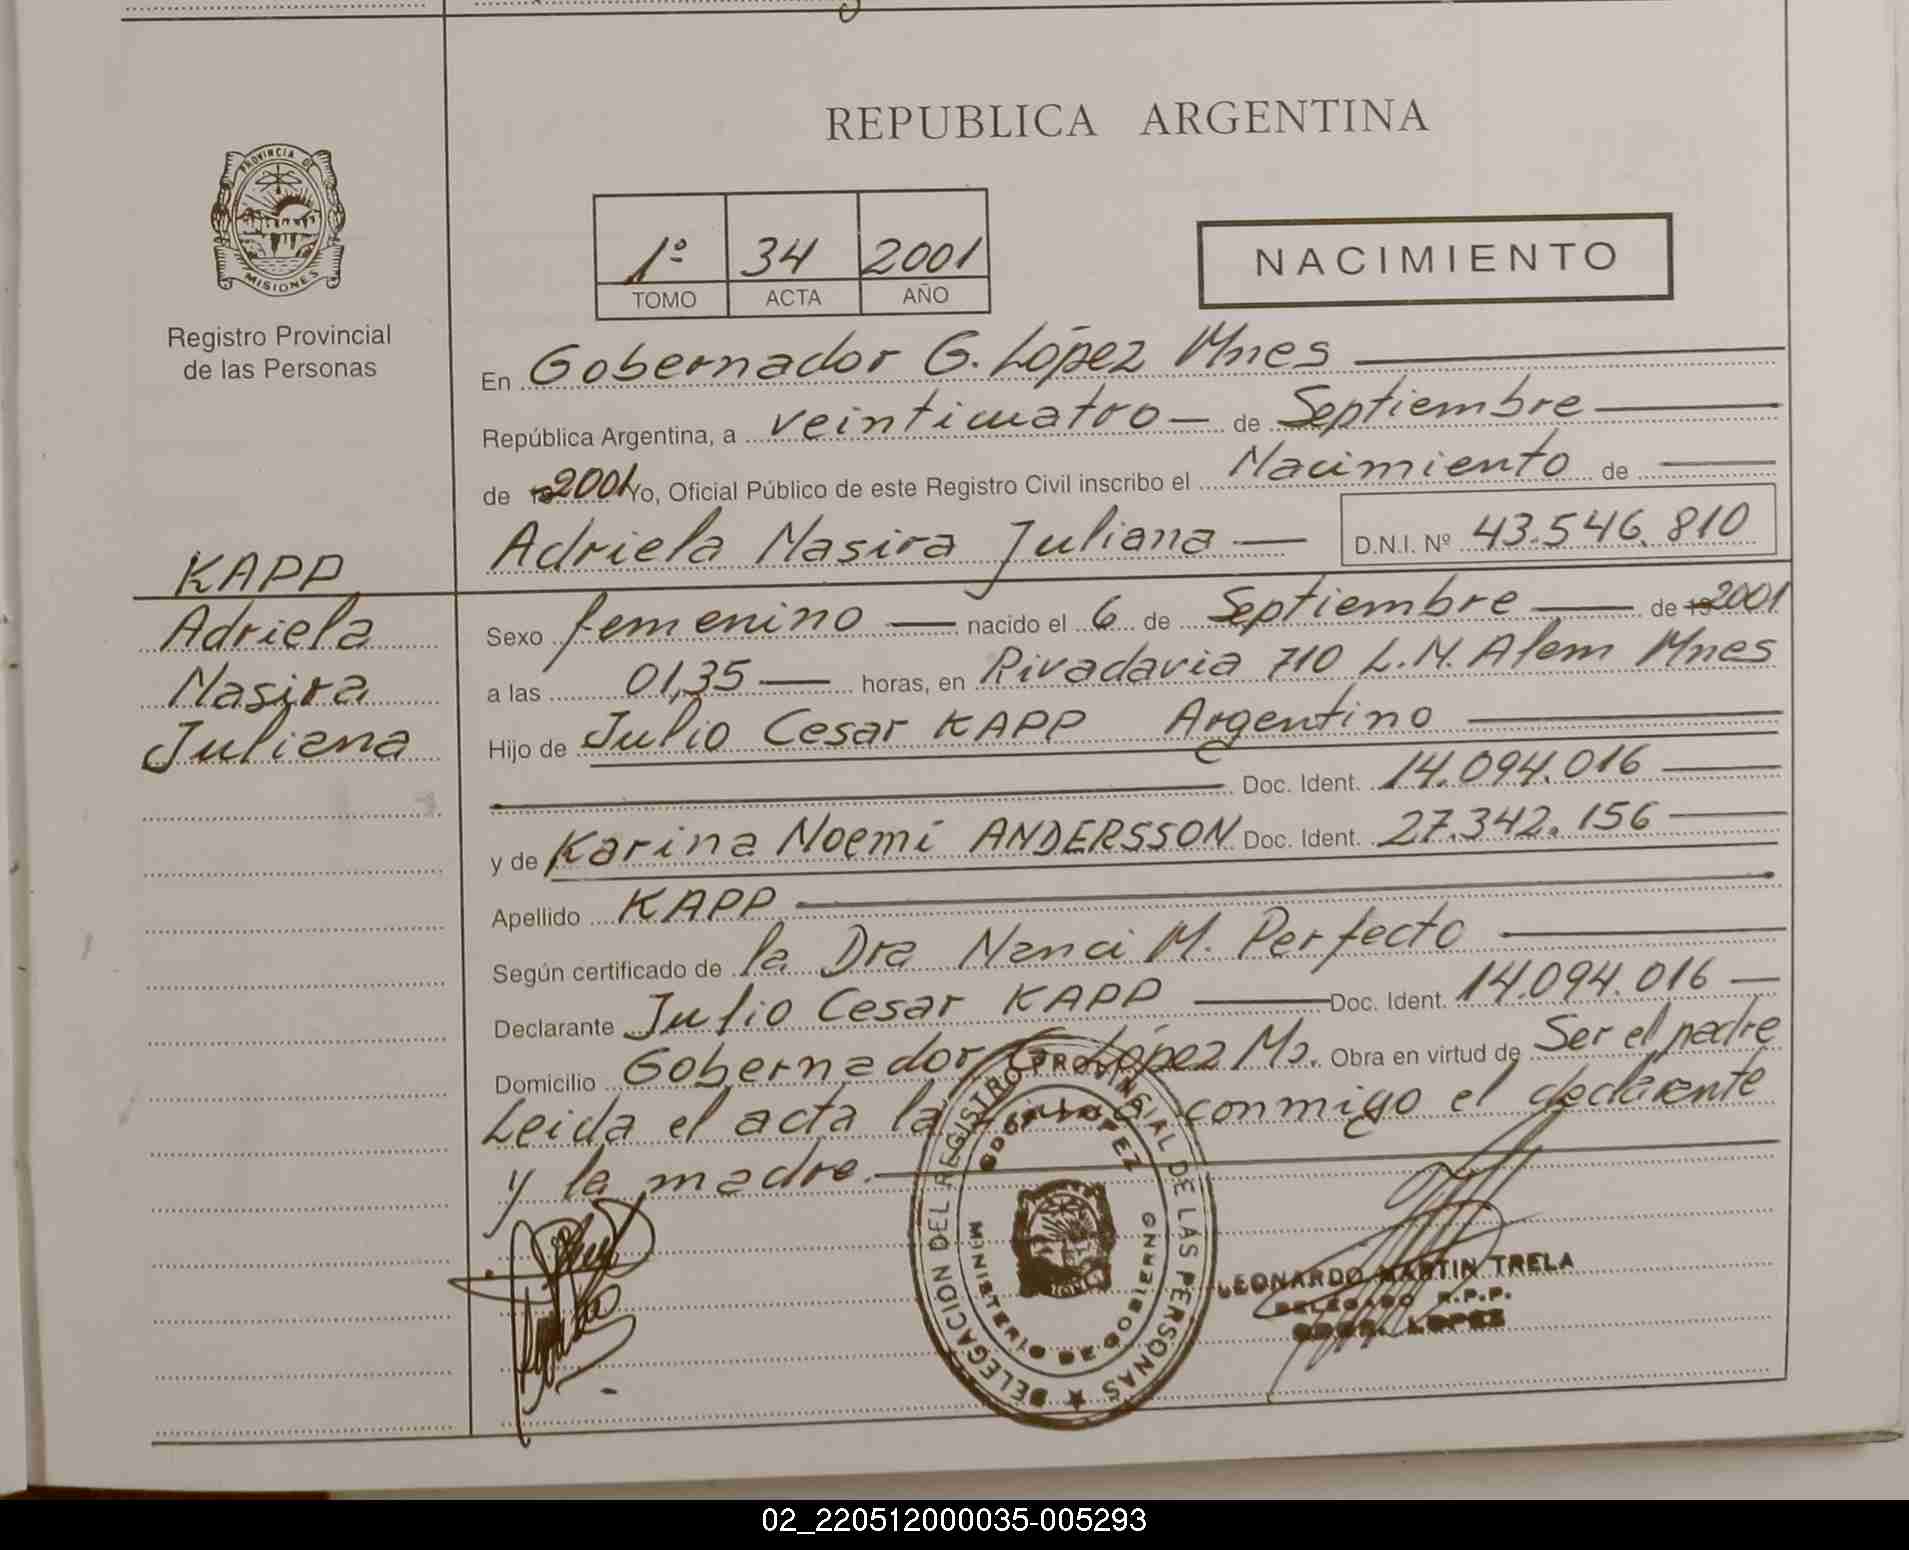 REPUBLICA ARGENTINA
PROVINCIA DE
MISIONES
Registro Provincial
de las Personas
1º 34 2001
TOMO ACTA AÑO
NACIMIENTO
En Gobernador G. López Mnes
República Argentina, a veinticuatro de Septiembre
de 2001 Yo, Oficial Público de este Registro Civil inscribo el Nacimiento de
Adriela Nasira Juliana D.N.I. Nº 43.546.810
KAPP
Adriela
Nasira
Juliana
Sexo femenino nacido el 6 de Septiembre de 2001
a las 01,35 horas, en Rivadavia 710 L.N. Alem Mnes
Hijo de Julio Cesar KAPP Argentino
Doc. Ident. 14.094.016
y de Karina Noemí ANDERSSON Doc. Ident. 27.342.156
Apellido KAPP
Según certificado de la Dra Nanci M. Perfecto
Declarante Julio Cesar KAPP Doc. Ident. 14.094.016
Domicilio Gobernador G. López Ms. Obra en virtud de Ser el padre
Leida el acta la conmigo el declarante
y la madre.
DELEGACION DEL REGISTRO PROVINCIAL DE LAS PERSONAS
LOPEZ
MINISTERIO DE GOBIERNO
LEONARDO MARTIN TRELA
DELEGADO R.P.P.
GDOR. LOPEZ
02_220512000035-005293